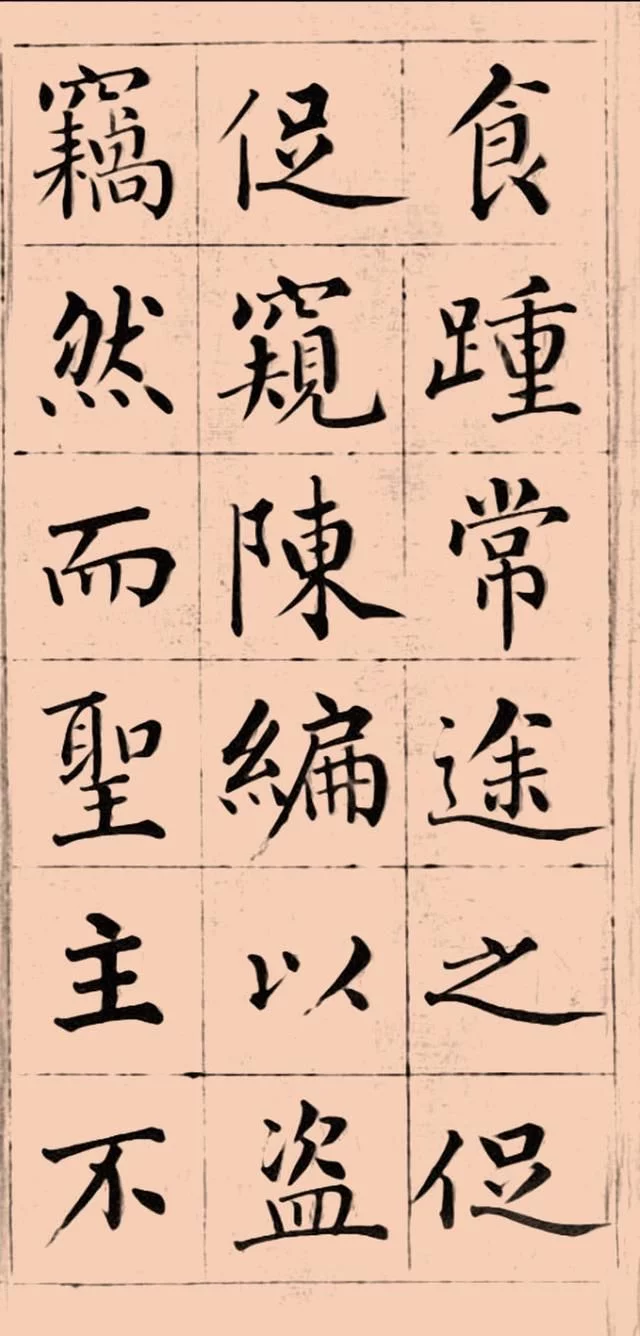 食踵常途之促
促窺陳編以盗
竊然而聖主不